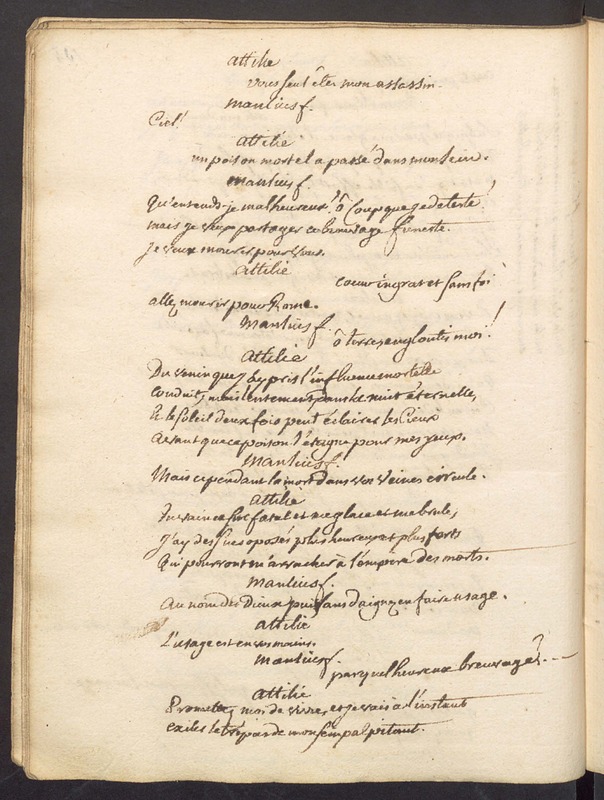 attilie
vous seul êtes mon assassin.
manlius f.
Ciel!
attilie
un poison mortel a passé dans mon sein.
manlius f.
Qu'entends-je malheureux! ô Coup que je deteste!
mais je veux partager ce breuvage funeste.
je veux mourir pour vous.
attilie
coeur ingrat et sans foi
allez mourir pour Rome.
Manlius f.
ô terre engloutis moi!
attilie
Du venin que j'ay pris l'influence mortelle
conduit, mais lentement dans la nuit éternelle,
Et le soleil deux fois peut éclairer les Cieux
avant que ce poison l'éteigne pour mes yeux.
Manlius f.
Mais cependant la mort dans vos veines circule.
attilie
En vain ce suc fatal et me glace et me brule,
J'ay des sucs oposés plus heureux et plus forts
Qui pourront m'arracher à l'empire des morts.
manlius f.
Au nom des Dieux puissans daignez en faire usage.
attilie
L'usage est en vos mains.
Manlius f.
par quel heureux breuvage?
attilie
Promettez moi de vivre, et je vais à l'instant
exiler le trépas de mon sein palpitant.